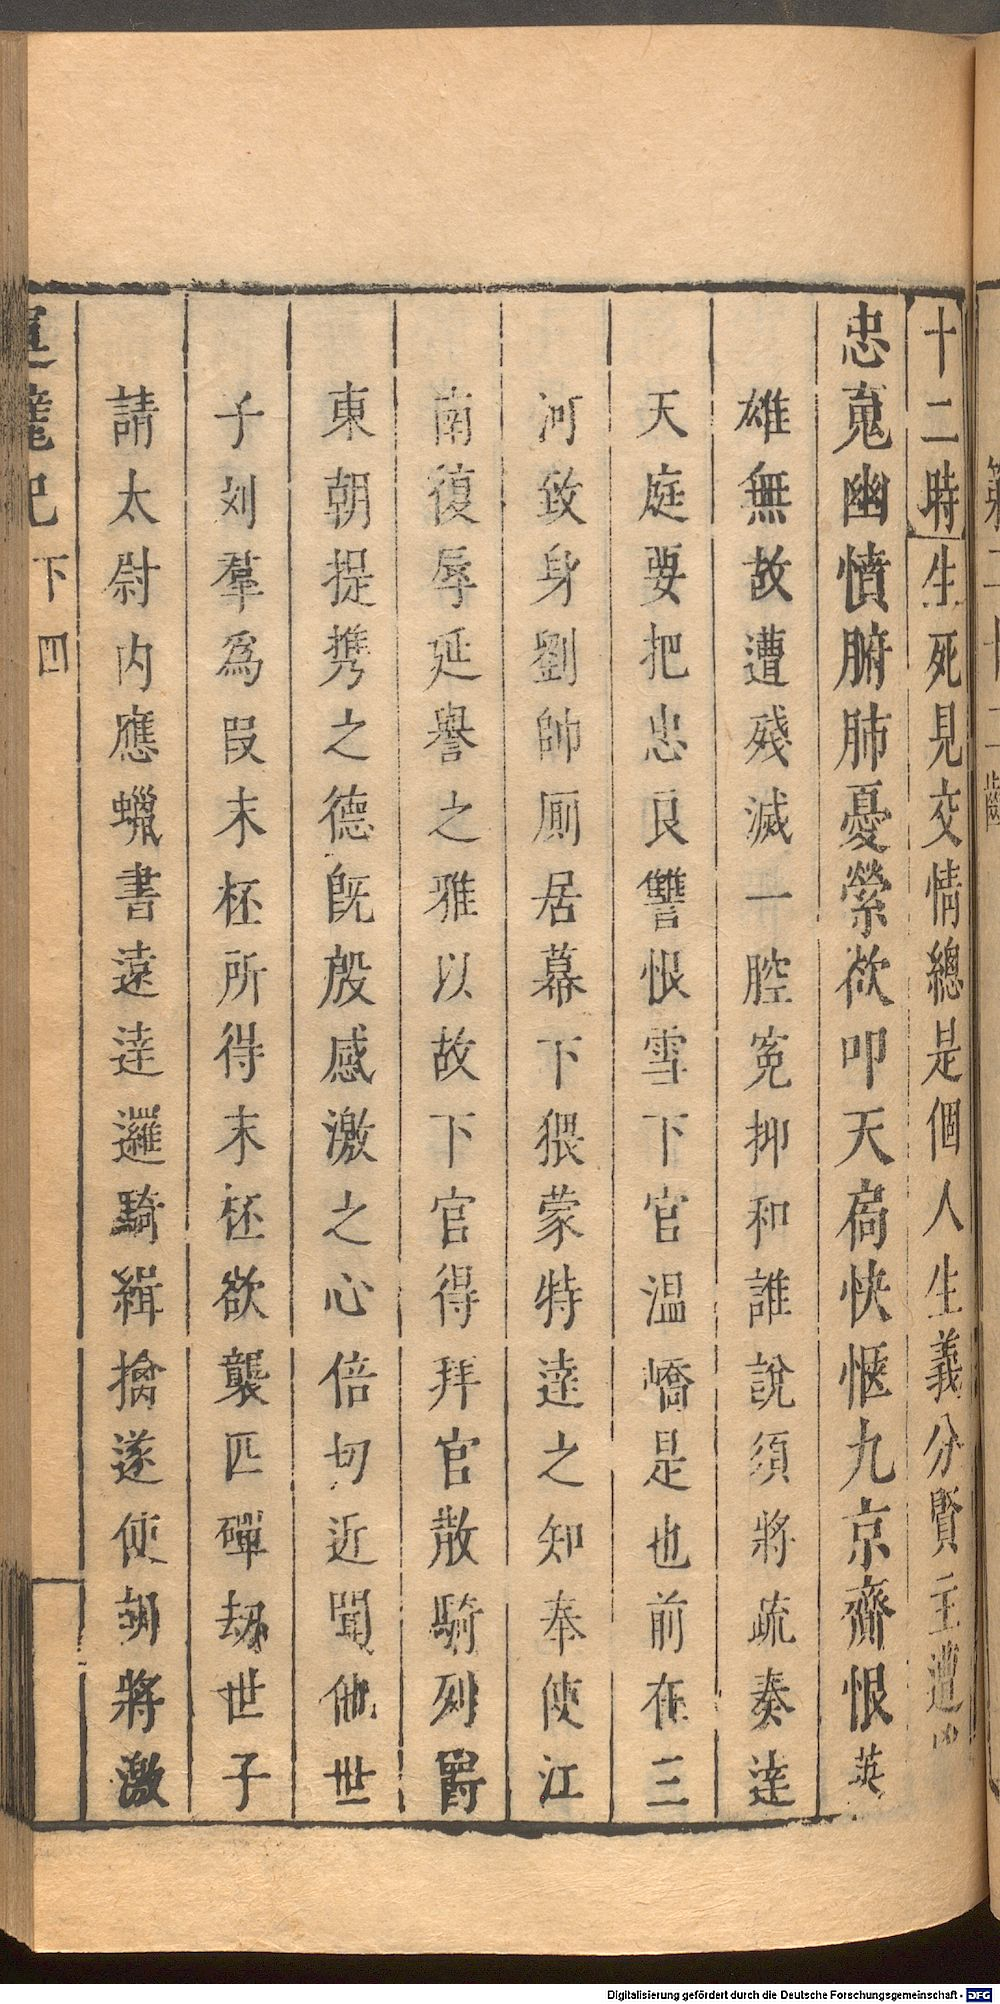 十二時生死見交情總是個人生義分賢主遭
忠䰟幽憤腑肺憂縈欲叩天高快愜九京齊恨英
雄無故遭殘滅一腔寃抑和誰說須將疏奏達
天庭要把忠良讐恨雪下官温嶠是也前在三
河致身劉帥厠居幕下猥蒙特達之知奉使江
南復辱延譽之雅以故下官得拜官散騎列爵
東朝提携之德旣殷感激之心倍切近聞他世
子刘羣爲叚末柸所得末柸欲襲匹磾刼世子
請太尉内應蠟書遠達邏騎緝擒遂使朝將激
下 四
Digitalisierung gefördert durch die Deutsche Forschungsgemeinschaft - DFG